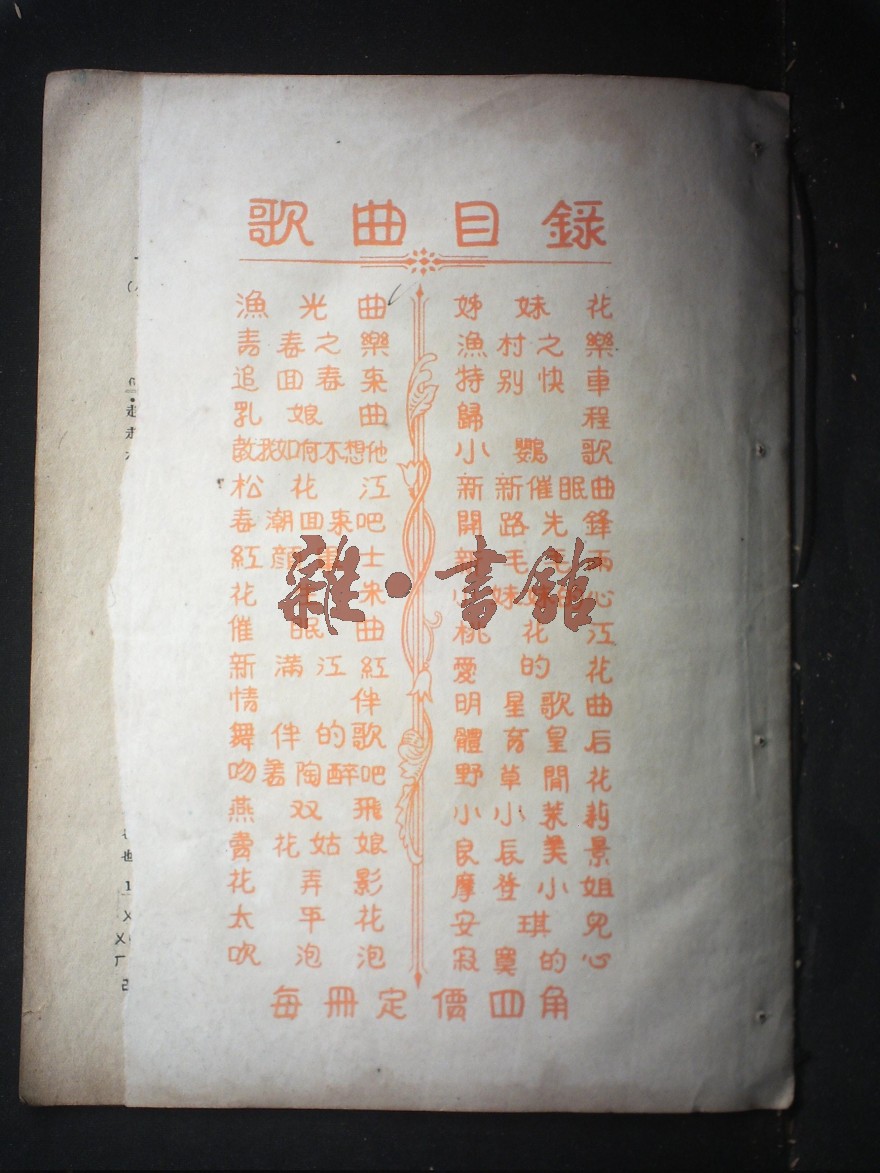 歌曲目錄
漁光曲
青春之樂
追回春來
乳娘曲
敎我如何不想他
松花江
春潮回來吧
紅顏士
花
催眠曲
新滿江紅
情伴
舞伴的歌
吻着陶醉吧
燕双飛
賣花姑娘
花弄影
太平花
吹泡泡
姊妹花
漁村之樂
特別快車
歸程
小鸚歌
新新催眠曲
開路先鋒
毛雨
妹心
桃花江
愛的花
明星歌曲
體育皇后
野草閒花
小小茉莉
良辰美景
摩登小姐
安琪兒
寂寞的心
每冊定價四角
雜·書館